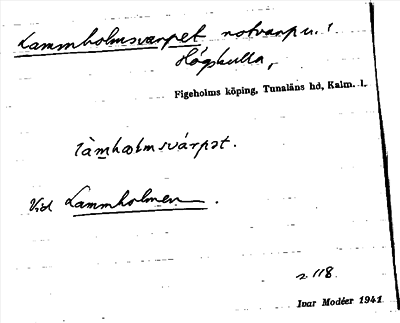 Lammholmsvarpet notvarp u.
Högskulla,
Figeholms köping, Tunaläns hd, Kalm. l.
làmhɷlmsvárpət.
Vid Lammholmen.
s. 118.
Ivar Modéer 1941